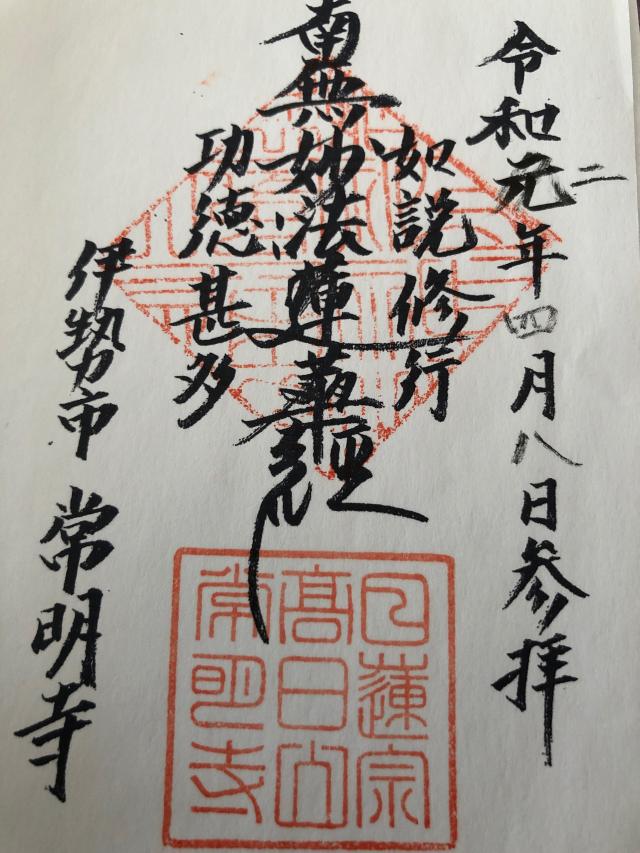 令和元二年四月八日参拝
如説修行
南無妙法蓮華経
功徳甚多
伊勢市 常明寺
日蓮宗
高日山
常明寺